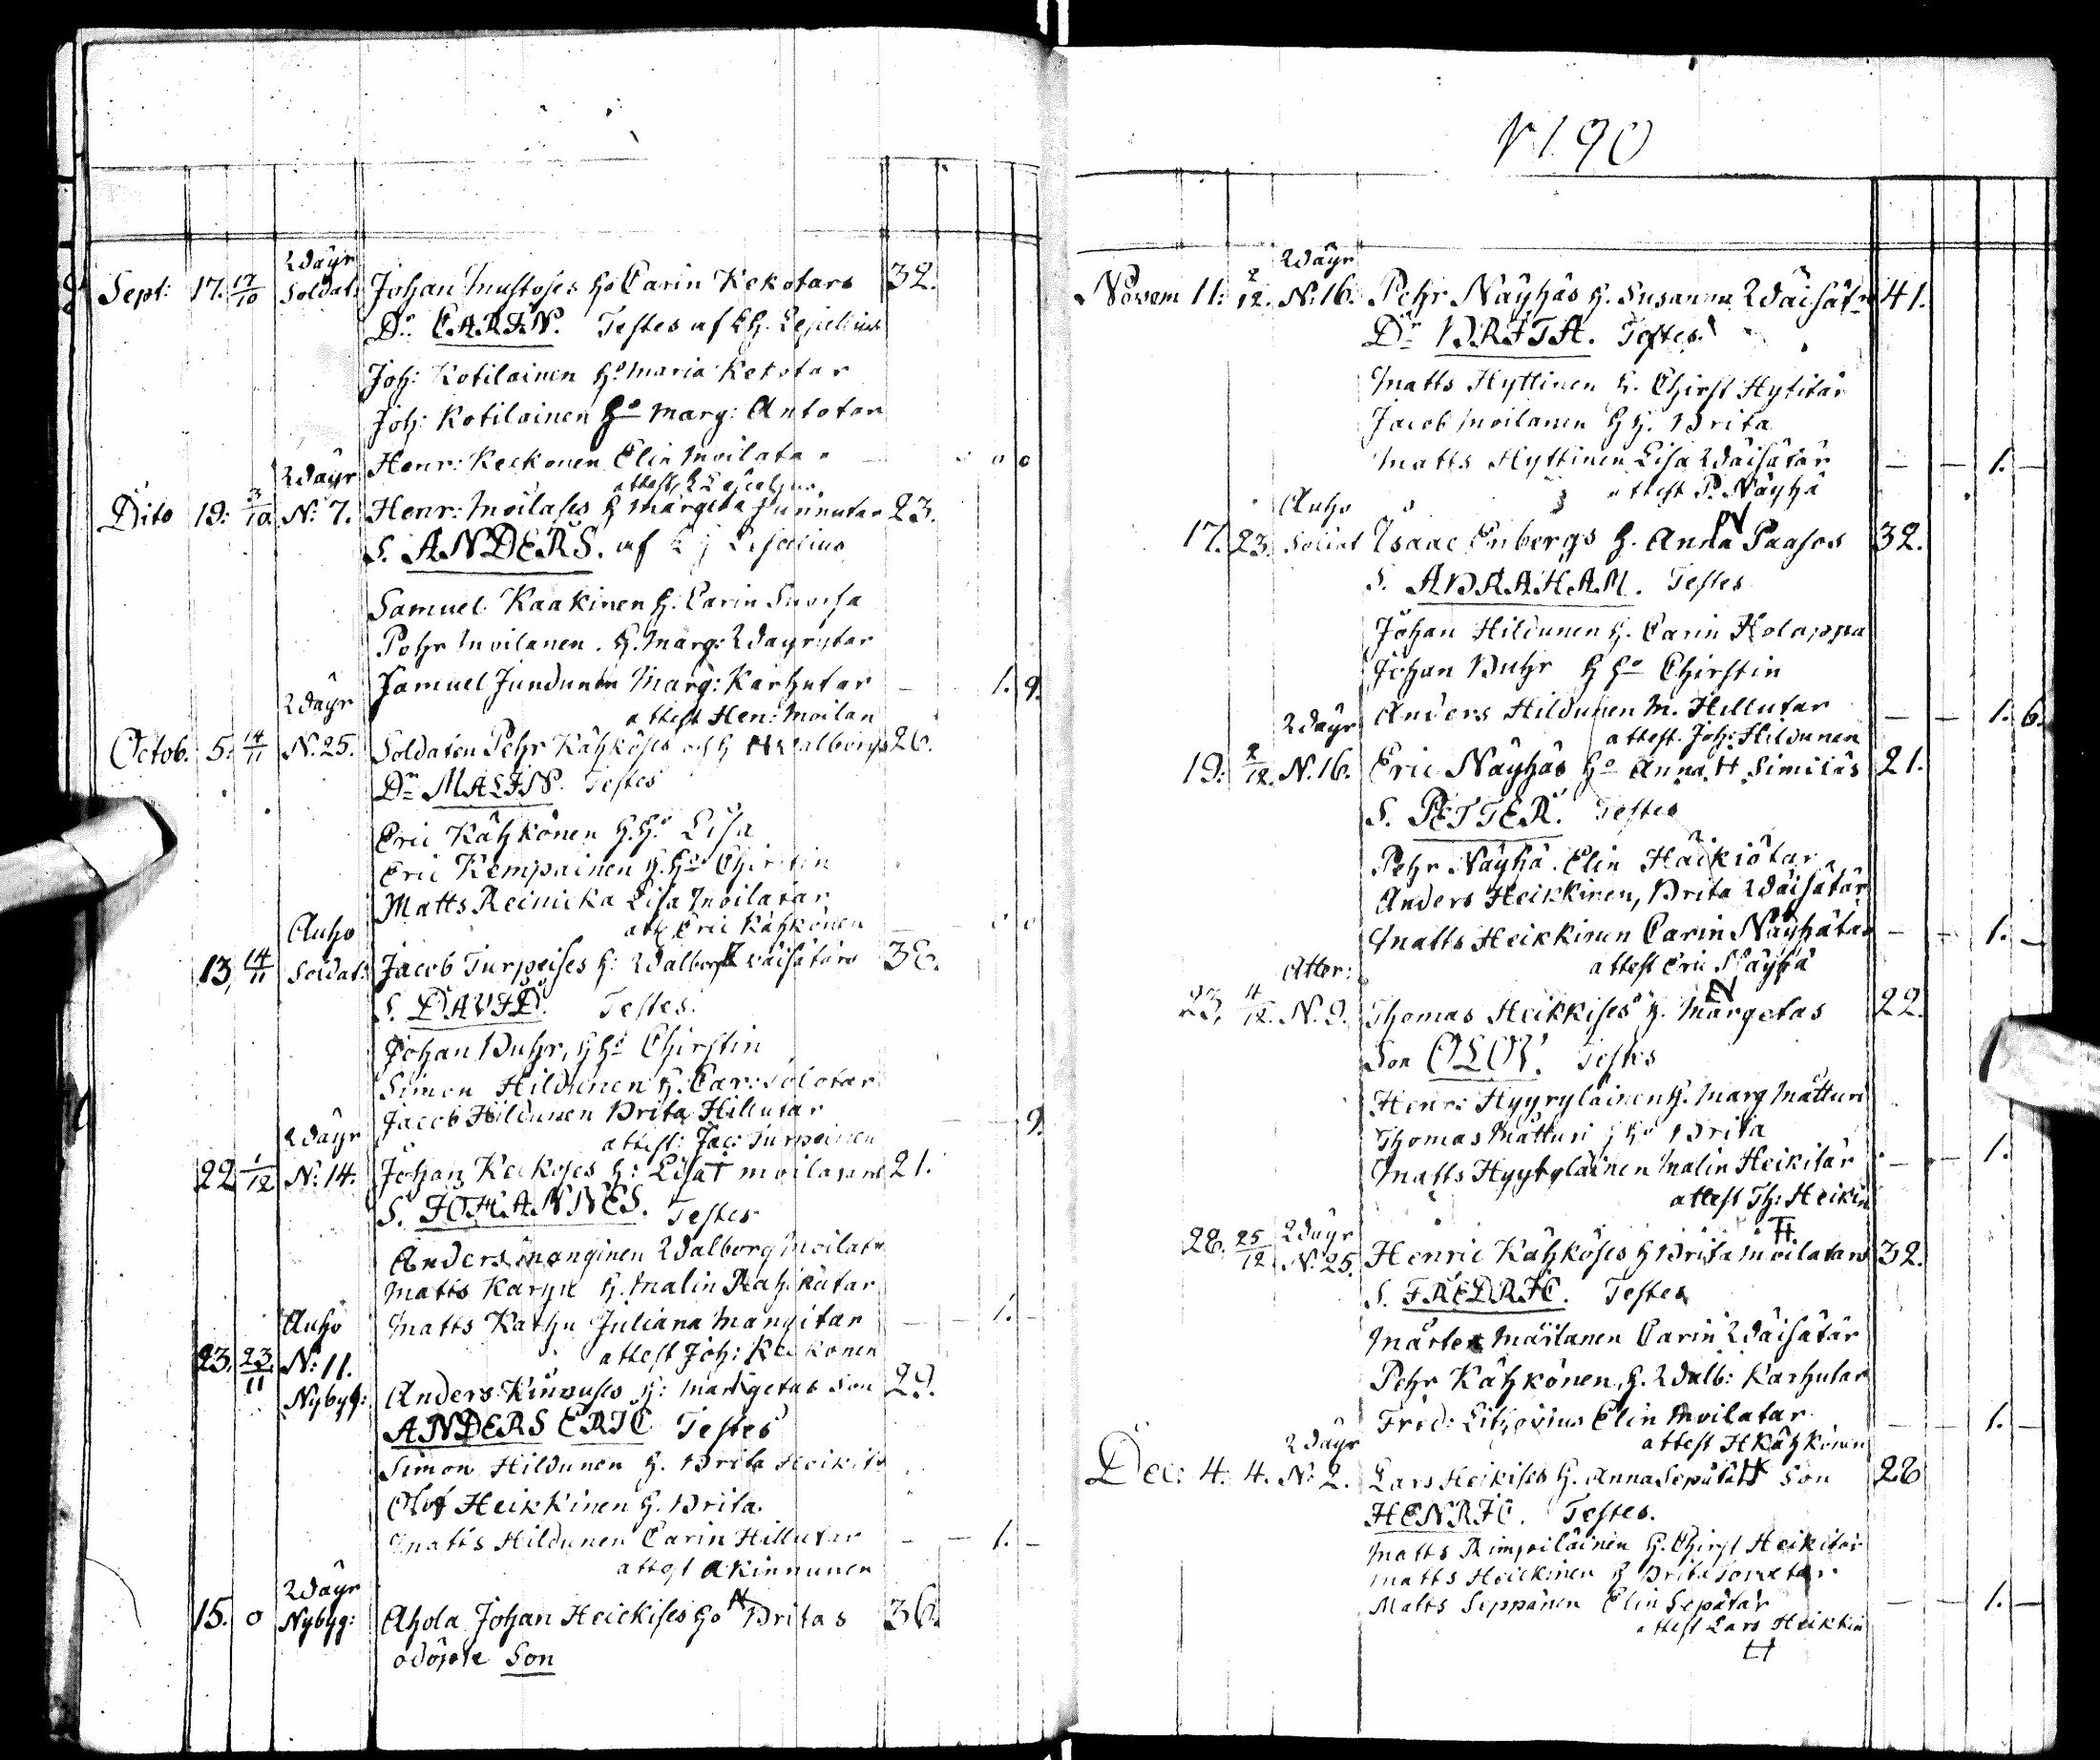 Wäyr
Sept: 17. 17/10 Soldat: Johan Mustoses ho Carin Kekotars 32.
Dr CARIN. Testes af
Joh: Kotilainen ho Maria Kekotar
Joh: Kotilainen ho Marg: Antotar
Henr: Keckonen Elin Moilatar
Wäyr attest
Dito 19: 3/10 N: 7. Henr: Moilases h Margeta 23.
S. ANDERS. af
Samuel Kaakinen h. Carin
Pehr Moilanen. h. Marg: Wäyrytar
Samuel Jundunen Marg: Karhutar – 1. 9.
Wäyr attest Hen: Moilan
Octob. 5. 14/11 N. 25. Soldaten Pehr Kähköses och h Walborgs 26.
Dr MALIN. Testes
Eric Kähkönen h. ho Lisa
Eric Kempainen h. ho Chirstin
Matts Reinicka Lisa Moilatar
Auho att Eric Kähkönen
13. 14/11 Soldat: Jacob Turpeises h: Walborg Wäisätärs 38.
S. DAVID. Testes.
Johan Buhr, h ho Chirstin
Simon Hildunen h. Car:
Jacob Hildunen Brita Hillutar 9.
Wäyr attest: Jac: Turpeinen
22 1/12 N: 14. Johan Keckoses h: Lisa Moilatars 21.
S. JOHANNES. Testes
Anders Manginen Walborg Moilatr
Matts Karhu h. Malin
Auho Matts Karhu Juliana Mangitar – – 1. –
attest Joh: Keckonen
23. 23/11 N: 11.
Nybyg: Anders Kinnuses h: Margetas Son 29.
ANDERS ERIC Testes
Simon Hildunen h. Brita Heikitr
Olof Heikkinen h. Brita.
Matts Hildunen Carin Hillutar – – 1. –
attest A Kinnunen
Wäyr
15. 0 Nybyg: Ahola Johan Heickises ho Britas 36.
odöpte Son
1790
Wäyr
Novem 11: 2/12. N: 16. Pehr Näyhäs h. Susanna Wäisätr 41.
Dr BRITA. Testes.
Matts Hyttinen h. Chirst Hytitär
Jacob Moilanen h h. Brita
Matts Hyttinen Lisa Wäisätär – – 1. –
attest P. Näyhä
Auho
17. 23. Soldat Isaac Enbergs h. Anna Paasos 32.
S. ABRAHAM. Testes
Johan Hildunen h. Carin Holappa
Johan Buhr h ho Chirstin
Wäyr Anders Hildunen M. Hillutar – – 1. 6.
attest. Joh: Hildunen
19. 2/12. N. 16. Eric Näyhäs ho Anna Similäs 21.
S. PETTER. Testes
Pehr Näyhä. Elin Häikiötar
Anders Heikkinen, Brita Wäisätär
Matts Heikkinen Carin Näyhätar – – 1. –
Atter: attest Eric Näyhä
23. 4/12. N. 9. Thomas Heikkises h. Margetas 22.
Son OLOV. Testes
Henr: Hyyryläinen h. Marg Mätturi
Thomas Mätturi h ho Brita
Matts Hyyryläinen Malin Heikitär – – 1.
attest Th: Heikin
28. 25/12 Wäyr N. 25. Henric Kähköses h Brita Moilatars 32.
S. FREDRIC. Testes
Mårten Määtänen Carin Wäisätär
Pehr Kähkönen, h. Walb: Karhutar
Fred: Lithovius Elin Moilatar – 1. –
Wäyr attest H Kähkönen
Dec: 4. 4. N: 2. Lars Heikises h. Anna Sepätär Son 28
HENRIC. Testes.
Matts Rimpiläinen h. Chirst Heikitär
Matts Heickinen h Brita
Matts Seppänen Elin Sepätär – – 1. –
attest Lars Heikkin